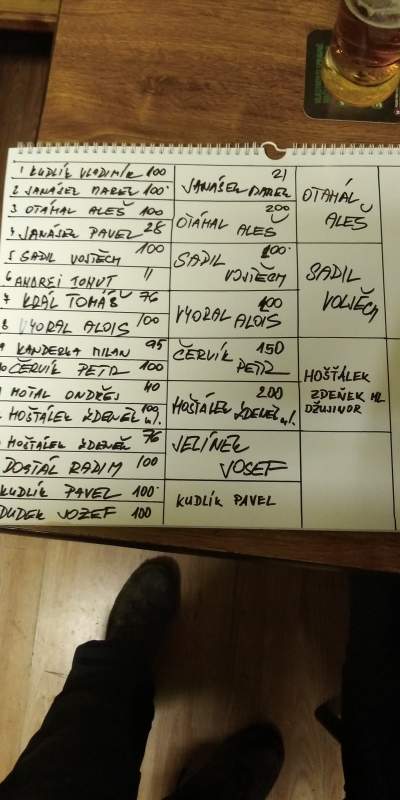 1 KUDLÍK VLADIMÍR 100
2 JANÁSEK MAREK 100
3 OTÁHAL ALEŠ 100
4 JANÁSEK PAVEL 28
5 SADIL VOJTĚCH 100
6 ANDREJ TOHUT 11
7 KRÁL TOMÁŠ 76
8 VYORAL ALOIS 100
9 KANDERKA MILAN 95
ČERVÍK PETR 100
MOŤAL ONDŘEJ 40
HOŠŤÁLEK ZDENĚK 100 ml.
HOŠŤÁLEK ZDENĚK 76
DOSTÁL RADIM 100
KUDLÍK PAVEL 100
DUDEK JOZEF 100
21
JANÁSEK MAREK
200
OTÁHAL ALEŠ
100
SADIL VOJTĚCH
100
VYORAL ALOIS
150
ČERVÍK PETR
200
HOŠŤÁLEK ZDENĚK ml.
JELÍNEK
JOSEF
KUDLÍK PAVEL
OTÁHAL
ALEŠ
SADIL
VOJTĚCH
HOŠŤÁLEK
ZDENĚK ML.
DŽUNIOR